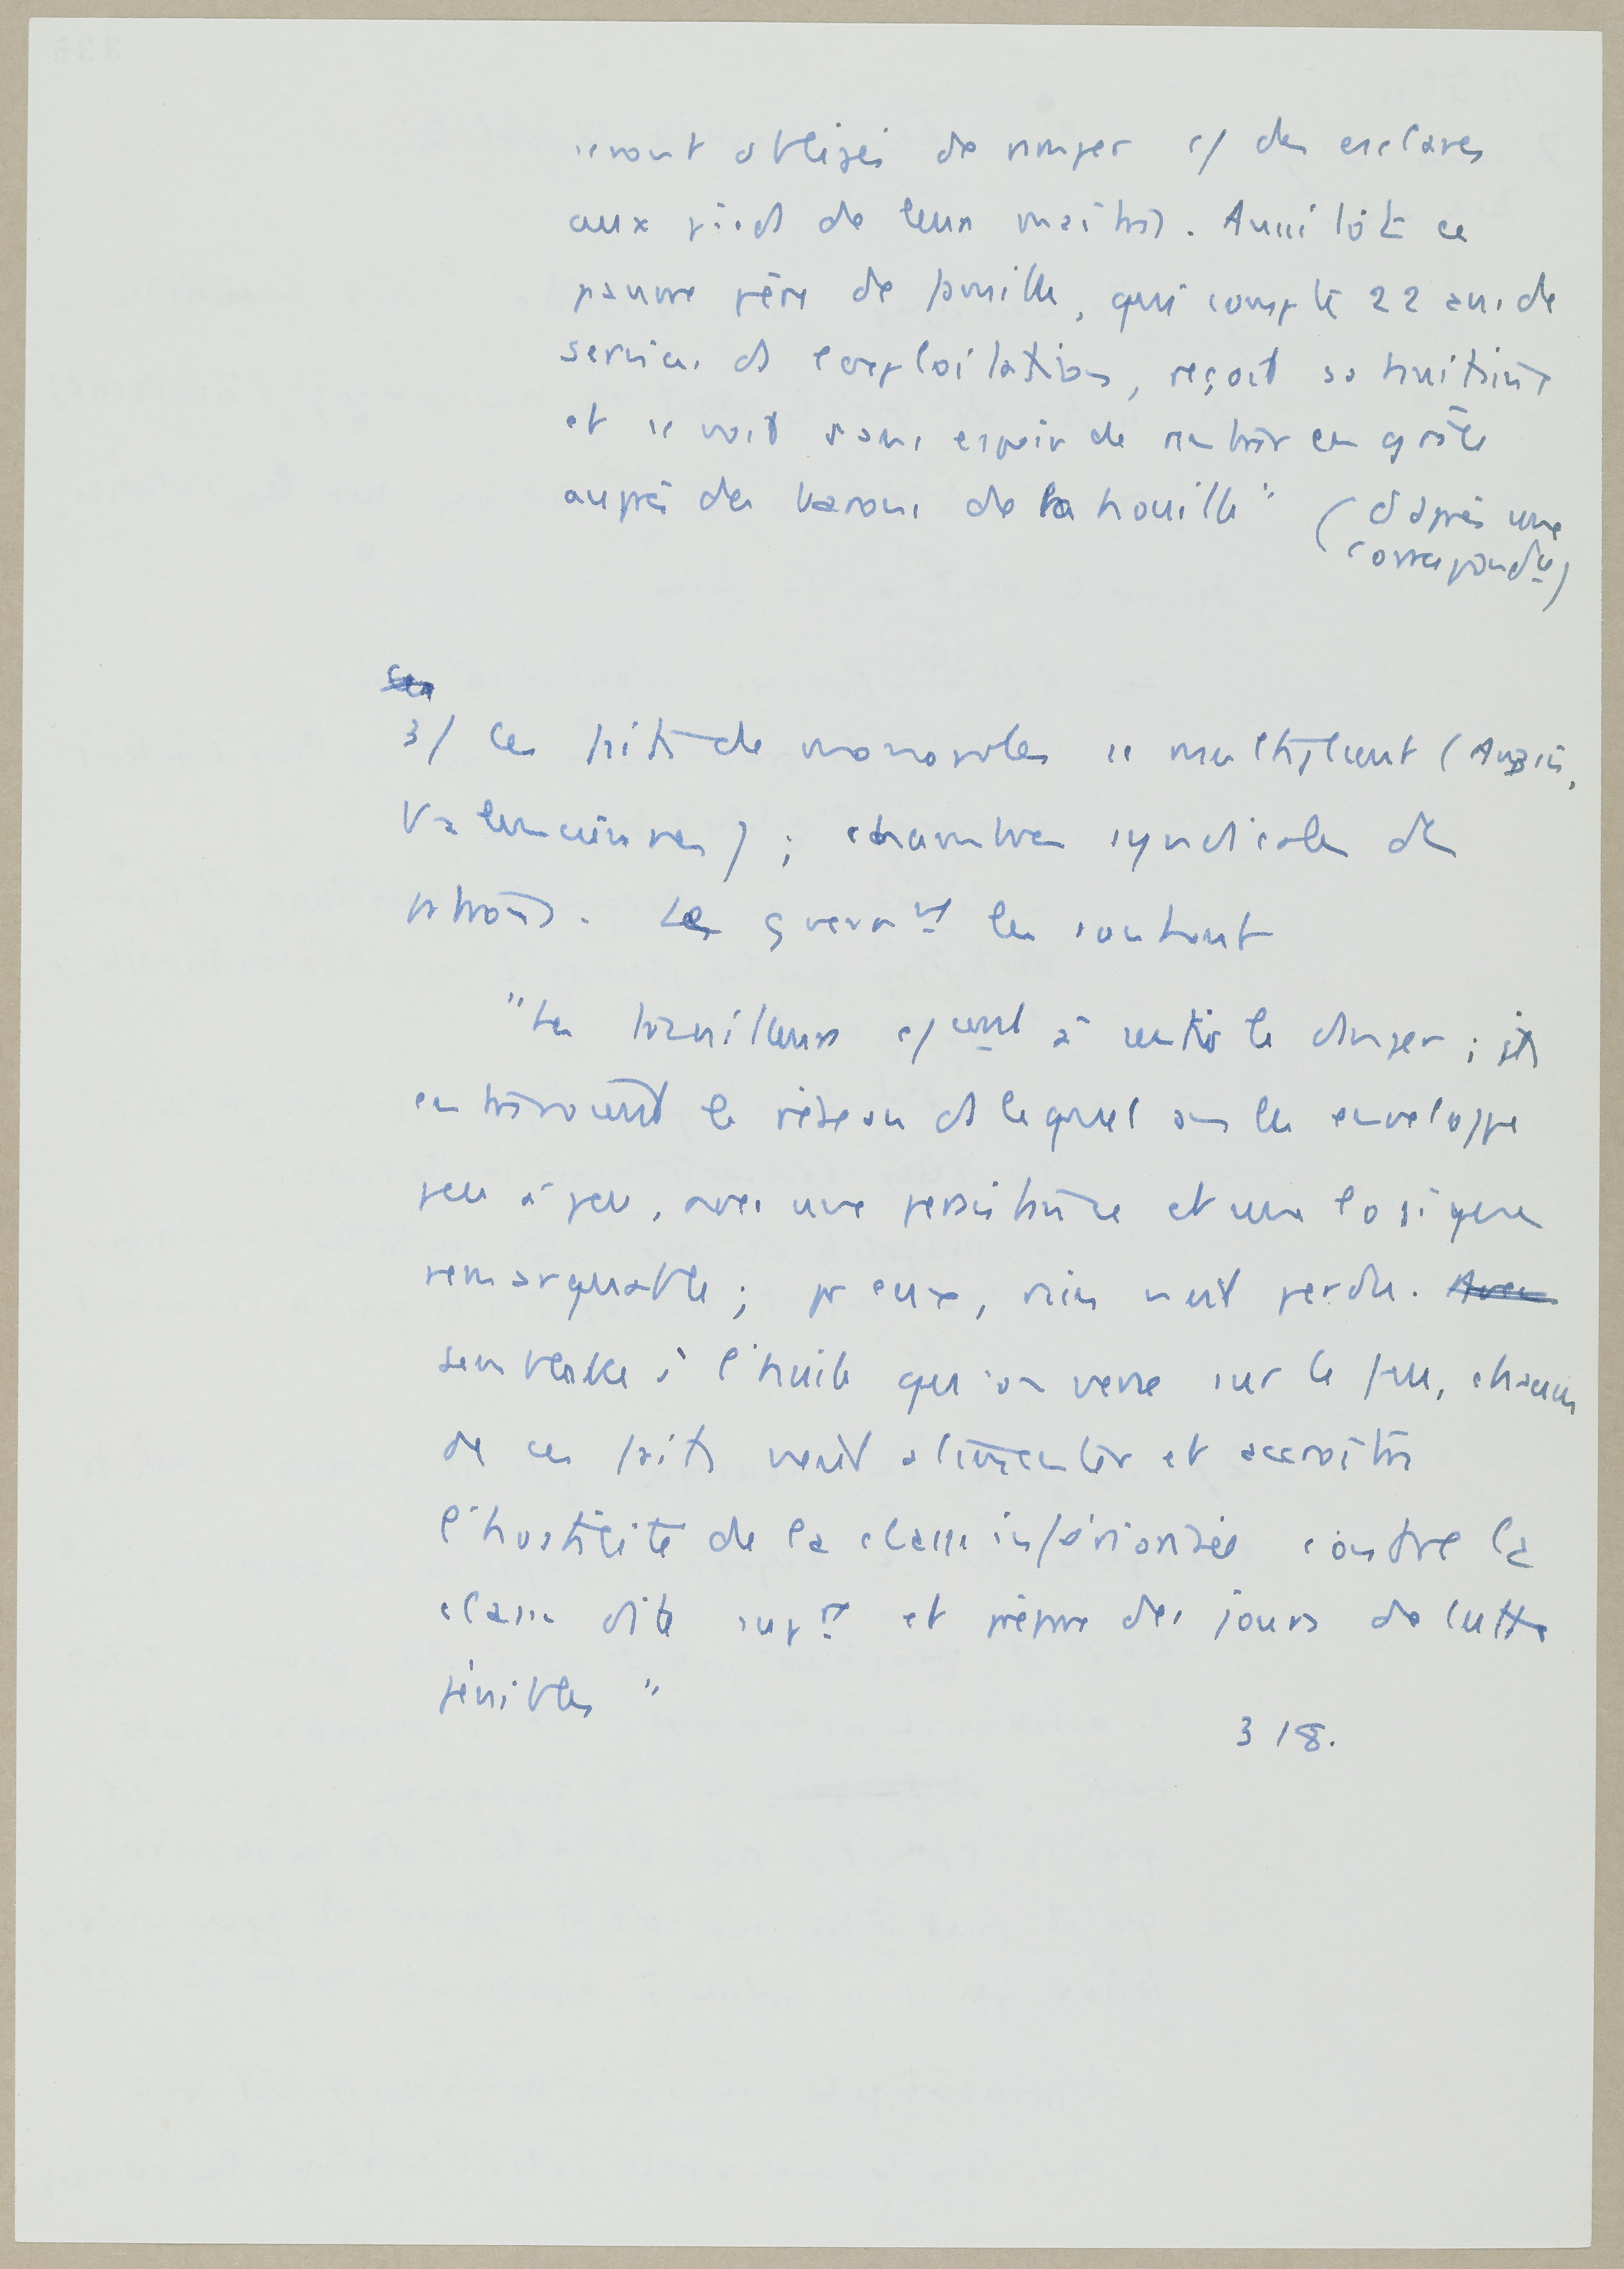 seront obligés de ramper c/ des esclaves
aux pieds de leurs maîtres. Aussitôt ce
pauvre père de famille, qui compte 22 ans de
services ds l'exploitation, reçoit sa quinzaine
et se voit sans espoir de rentrer en grâce
auprès des barons de la houille" (d'après une
correspondce)
3/ Ces faits de monopoles se multiplient (Anzin,
Valenciennes) ; chambres syndicales de
patrons. Les gvernts les soutient
"Les travailleurs c/cent à sentir le danger ; ils
entrevoient le réseau ds lequel on les enveloppe
peu à peu, avec une persistance et une logique
remarquable ; pr eux, rien n'est perdu. Avec
semblable à l'huile qu'on verse sur le feu, chacun
de ces faits vient alimenter et accroître
l'hostilité de la classe infériorisée contre la
classe dite supre et prépare des jours de lutte
pénibles "
318.